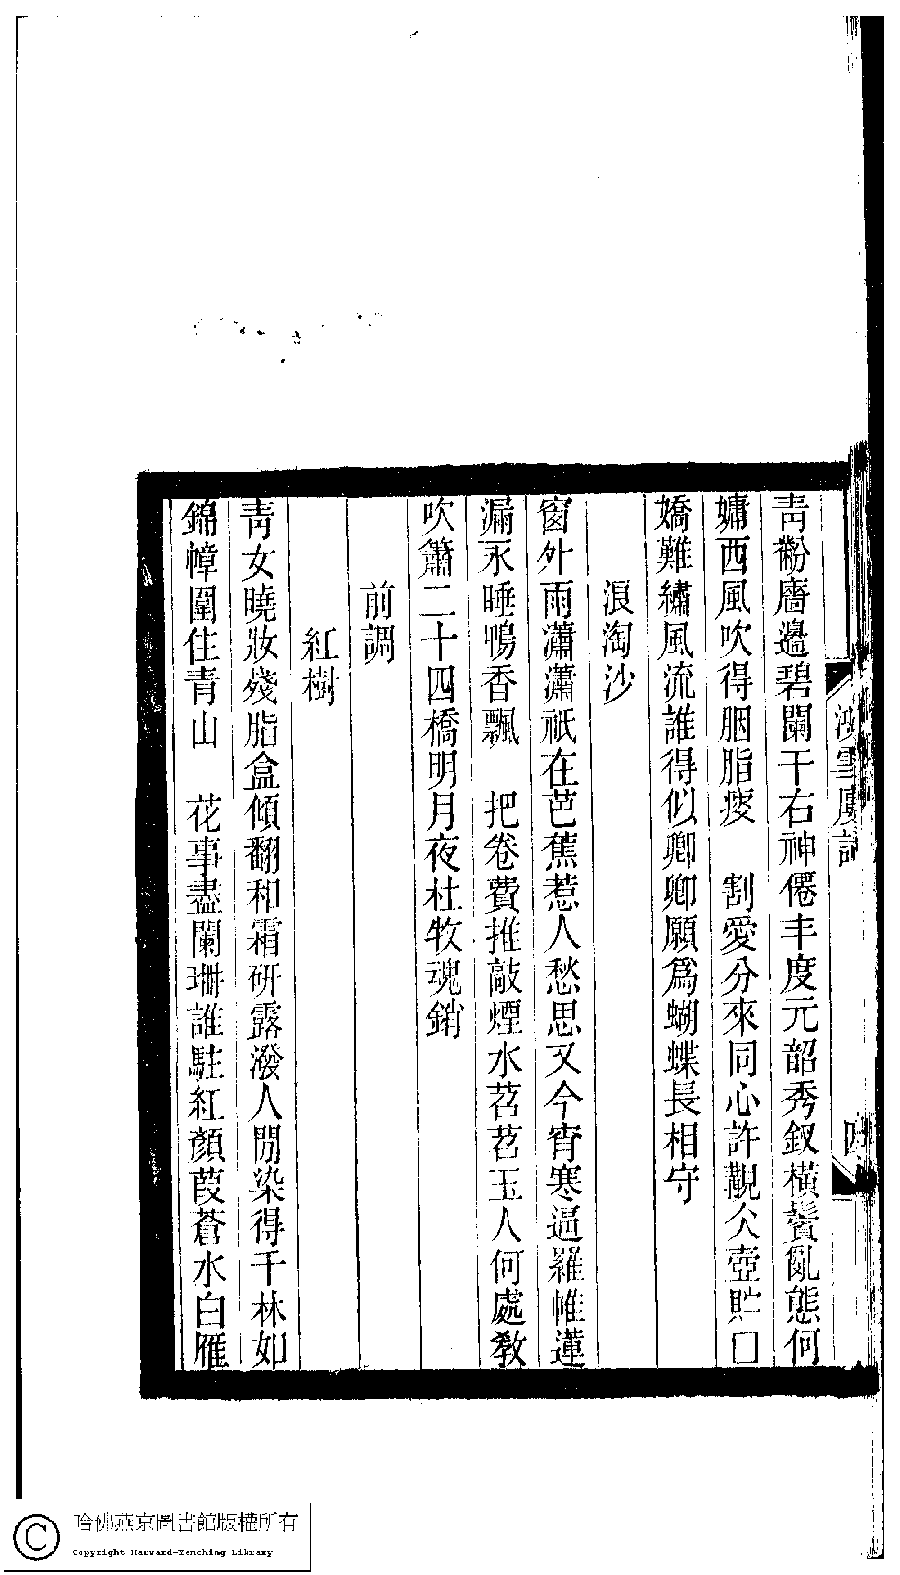 青粉牆邊碧闌干右神僊丰度元韶秀釵橫鬢亂態何
嫞西風吹得胭脂痩　割愛分來同心許覯仌壺貯口
嬌難繡風流誰得似卿卿願爲蝴蝶長相守
浪淘沙
窗外雨瀟瀟祇在芭蕉惹人愁思又今宵寒逼羅帷蓮
漏永睡鴨香飄　把卷費推敲煙水苕苕玉人何處教
吹簫二十四橋明月夜杜牧魂銷
前調
紅樹
青女曉妝殘脂盒傾翻和霜研露潑人閒染得千林如
錦幛圍住青山　花事盡闌珊誰駐紅顏葭蒼水白雁
雪
四
哈佛燕京圖書館版權所有
Copyright Harvard-Yenching Library